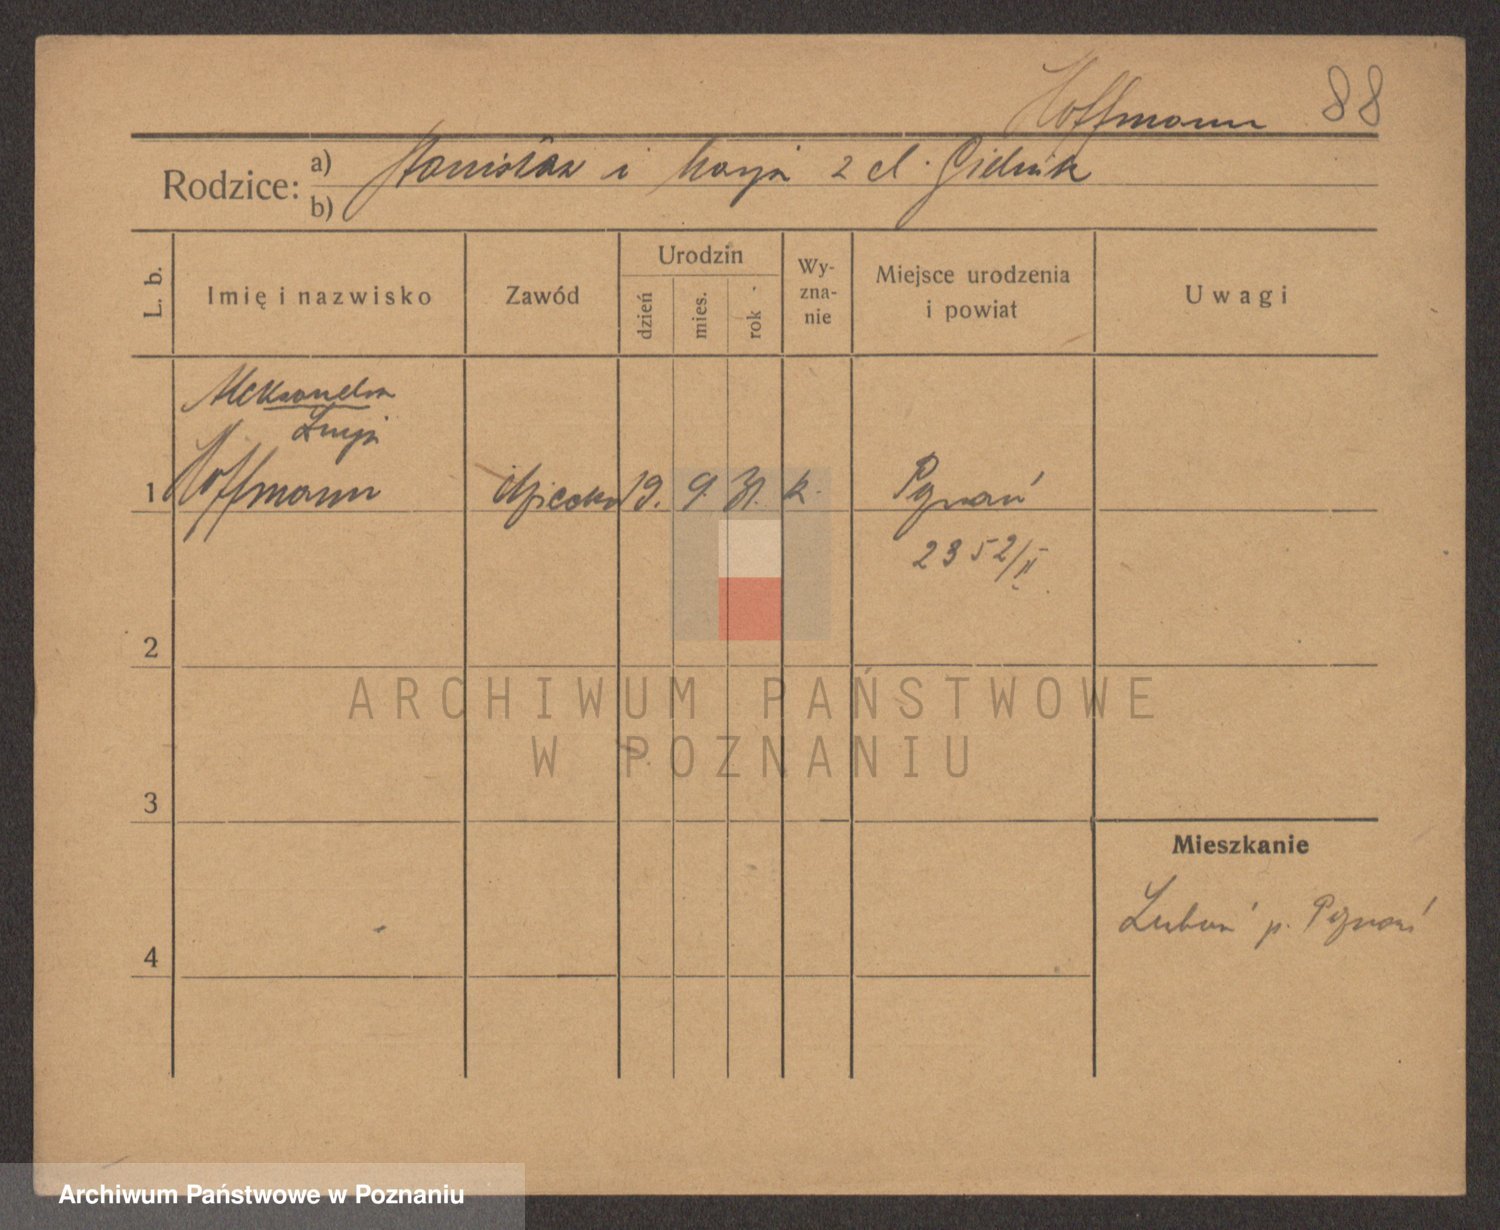 Hoffmann 88
Rodzice: a) Stanisław i Marja z d. Gielnik
b)
L. b.
Imię i nazwisko
Zawód
Urodzin
dzień
mies.
rok
Wy-
zna-
nie
Miejsce urodzenia
i powiat
Uwagi
Aleksandra
Łucja
1 Hoffmann dziecko 19. 9. 31. k. Poznań
2352/II
2
ARCHIWUM PAŃSTWOWE
W POZNANIU
3
Mieszkanie
Luboń p. Poznań
4
Archiwum Państwowe w Poznaniu